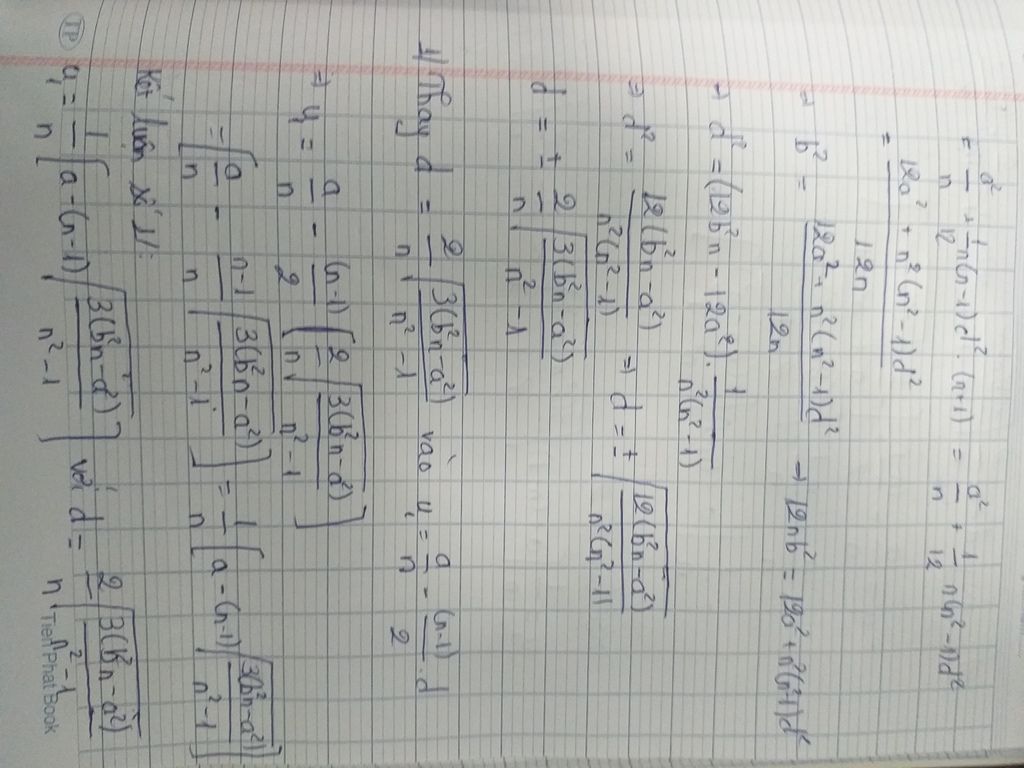 = a²/n + 1/12 n(n-1)d² . (n+1) = a²/n + 1/12 n(n²-n)d²
= (12a² + n²(n²-1)d²)/12n
⇒ b² = (12a² + n²(n²-1)d²)/12n ⇒ 12nb² = 12a² + n²(n²-1)d²
⇒ d² = (12b²n - 12a²) . 1/(n²(n²-1))
⇒ d² = 12(b²n - a²)/(n²(n²-1)) ⇒ d = ± √(12(b²n - a²)/(n²(n²-1)))
d = ± 2/n √(3(b²n - a²)/(n²-1))
1/ Thay d = 2/n √(3(b²n - a²)/(n²-1)) vào u₁ = a/n - (n-1)/2 . d
⇒ u₁ = a/n - (n-1)/2 [2/n √(3(b²n - a²)/(n²-1))]
= [a/n - (n-1)/n √(3(b²n - a²)/(n²-1))] = 1/n [a - (n-1) √(3(b²n - a²)/(n²-1))]
Kết luận số 1/:
a₁ = 1/n [a - (n-1) √(3(b²n - a²)/(n²-1))] với d = 2/n √(3(b²n - a²)/(n²-1))
TP
Tien Phat Book